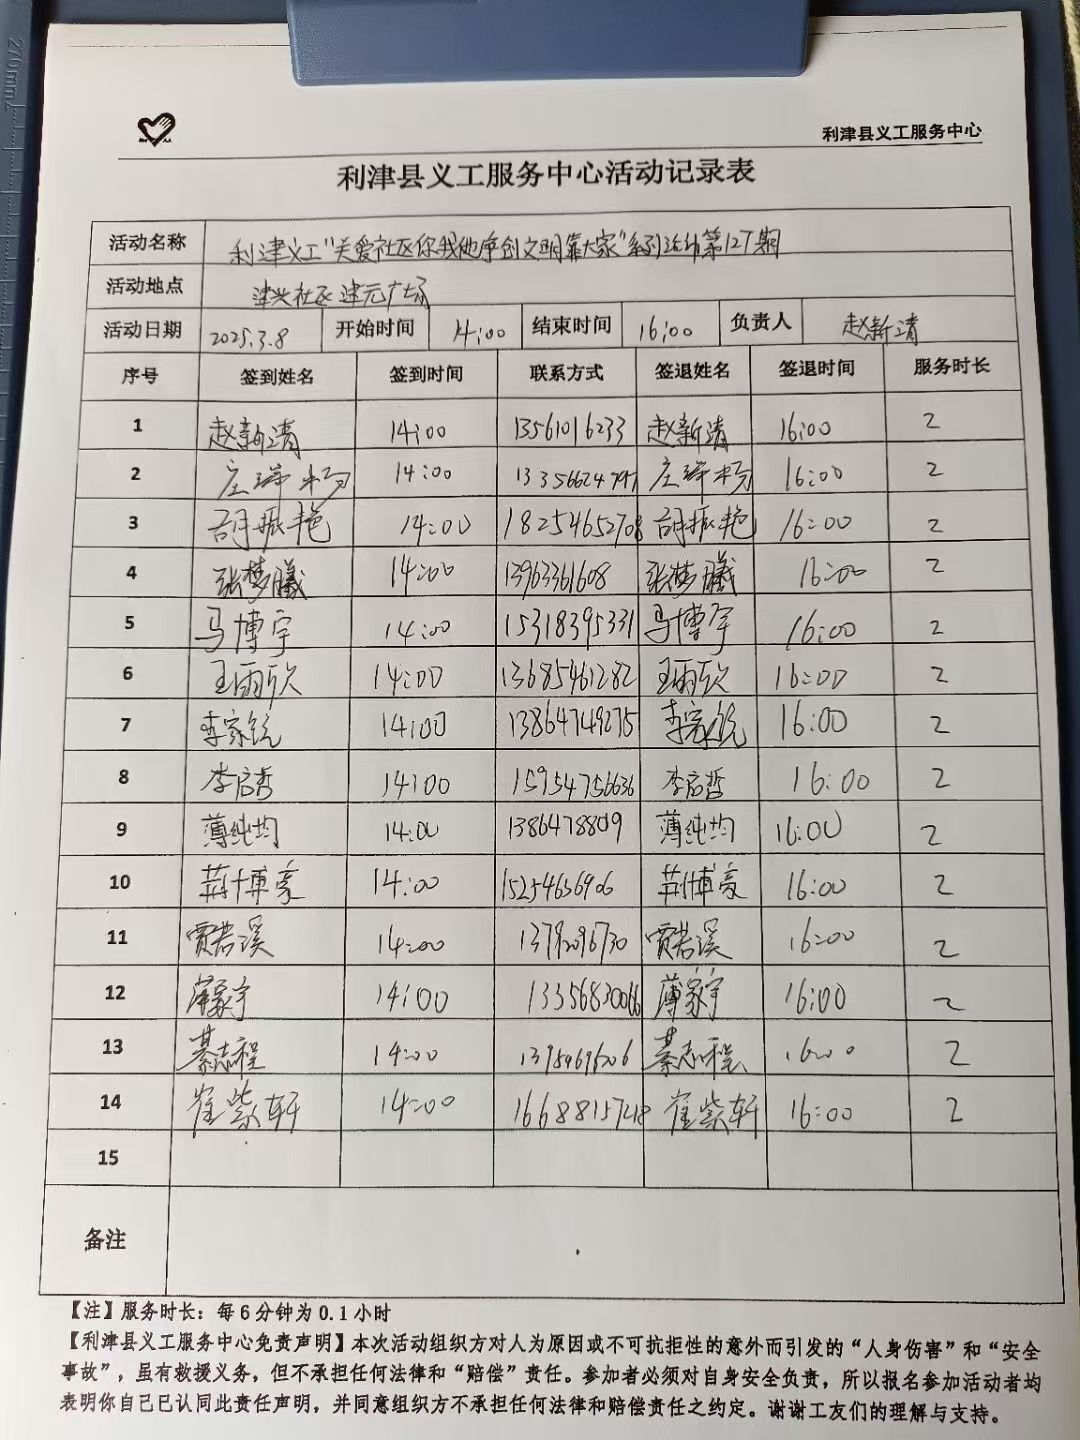 270mm
利津县义工服务中心
利津县义工服务中心活动记录表
活动名称 利津义工"关爱社区你我他争创文明靠大家"系列活动第127期
活动地点 津兴社区津元广场
活动日期 2025.3.8 开始时间 14:00 结束时间 16:00 负责人 赵新清
序号 签到姓名 签到时间 联系方式 签退姓名 签退时间 服务时长
1 赵新清 14:00 13561016233 赵新清 16:00 2
2 14:00 16:00 2
3 胡振艳 14:00 18254652708 胡振艳 16:00 2
4 张梦曦 14:00 13963361608 张梦曦 16:00 2
5 马博宇 14:00 15318395331 马博宇 16:00 2
6 王雨欣 14:00 13685461282 王雨欣 16:00 2
7 李家锐 14:00 13864749275 李家锐 16:00 2
8 李启哲 14:00 15954756636 李启哲 16:00 2
9 薄纯均 14:00 1386478809 薄纯均 16:00 2
10 荆博豪 14:00 15254636906 荆博豪 16:00 2
11 贾若溪 14:00 13792096730 贾若溪 16:00 2
12 薄家宇 14:00 13356830066 薄家宇 16:00 2
13 綦志程 14:00 綦志程 16:00 2
14 崔紫轩 14:00 16688157218 崔紫轩 16:00 2
15
备注
【注】服务时长：每6分钟为0.1小时
【利津县义工服务中心免责声明】本次活动组织方对人为原因或不可抗拒性的意外而引发的“人身伤害”和“安全
事故”，虽有救援义务，但不承担任何法律和“赔偿”责任。参加者必须对自身安全负责，所以报名参加活动者均
表明你自己已认同此责任声明，并同意组织方不承担任何法律和赔偿责任之约定。谢谢工友们的理解与支持。